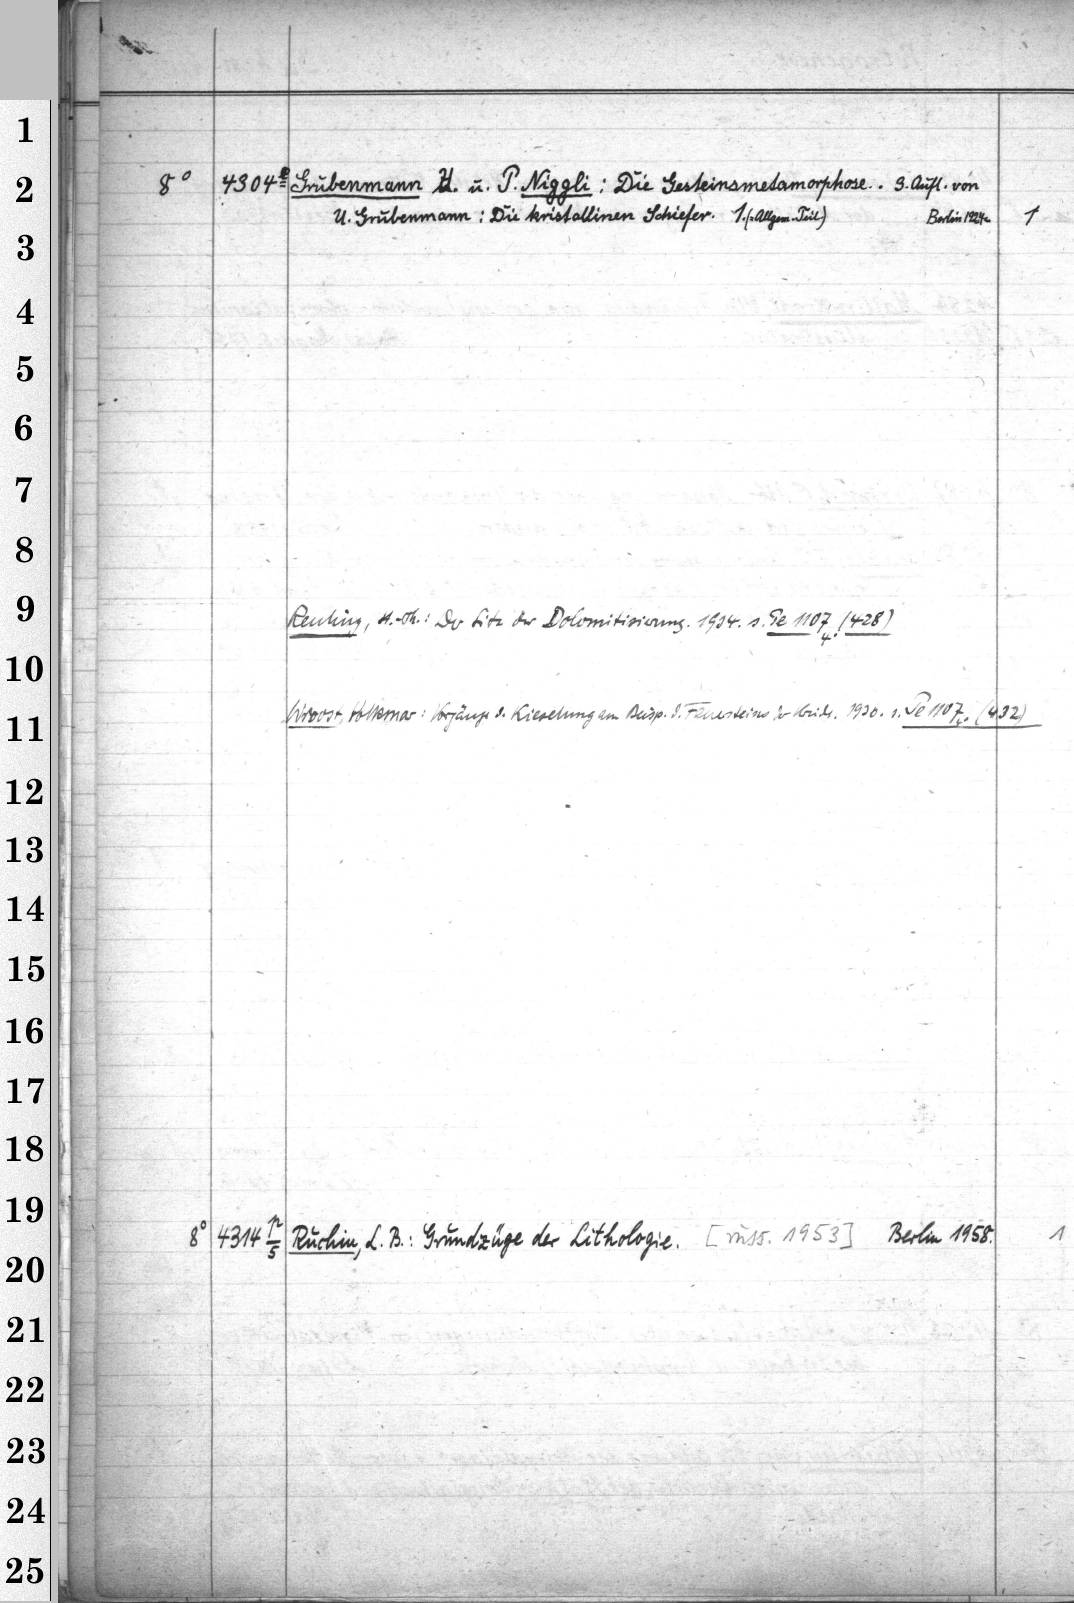 1
2
3
4
5
6
7
8
9
10
11
12
13
14
15
16
17
18
19
20
21
22
23
24
25
8° 4304e Grubenmann U. u. P. Niggli : Die Gesteinsmetamorphose. . 3. Aufl. von
U. Grubenmann : Die kristallinen Schiefer. 1. (=Allgem. Teil) Berlin 1924. 1
Reuling, H.-Th.: Der Sitz der Dolomitisierung. 1934. s. Pe 1107 4° (428)
Wroost, Volkmar: Vorgänge d. Kieselung am Beisp. d. Feuersteins der Kreide. 1930. s. Pe 1107 4° (432)
8° 4314 r/5 Ruchin, L. B.: Grundzüge der Lithologie. [russ. 1953] Berlin 1958. 1